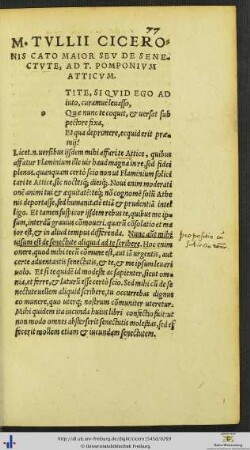 77
M. TVLLII CICERO-
NIS CATO MAIOR SEV DE SENE-
CTVTE, AD T. POMPONIVM
ATTICVM.
TITE, SI QVID EGO AD
iuto, curamue leuasso,
Quæ nunc te coquit, & uersat sub
pectore fixa,
Et qua deprimere, ecquid erit præ-
mij?
Licet.n. uersibus ijsdem mihi affari te Attice, quibus
affatur Flaminium ille uir haud magna in re, sed fidei
plenus. quanquam certò scio non ut Flaminium solici
tari te Attice, sic noctésq; diésq;. Noui enim moderati
onē animi tui & æquitatē: teq; nō cognomē solū Athe
nis deportasse, sed humanitatē etiā & prudentiā intel
ligo. Et tamen suspicor ijsdem rebus te, quibus me ip-
sum, interdū grauius cōmoueri, quarū cōsolatio et ma
ior est, & in aliud tempus differenda. Nunc aūt mihi
uisum est de senectute aliquid ad te scribere. Hoc enim
onere, quod mihi tecū cōmune est, aut iā urgentis, aut
certe aduentantis senectutis, & te, & me ipsum leuari
uolo. Et si te quidē id modestè ac sapienter, sicut om-
nia, et ferre, & laturū esse certò scio. Sed mihi cū de se
nectute uellem aliquid scribere, tu occurrebas dignus
eo munere, quo uterq; nostrum cōmuniter uteretur.
Mihi quidem ita iucunda huius libri confectio fuit ut
non modo omnes absterserit senectutis molestias, sed ef
fecerit mollem etiam & iucundam senectutem.
propositio
http://dl.ub.uni-freiburg.de/diglit/cicero1545d/0769